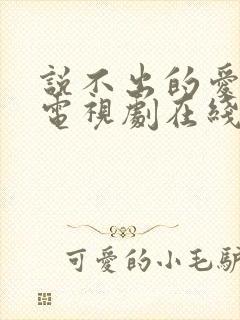 說不出的愛
電視劇在綫
可愛的小毛驢